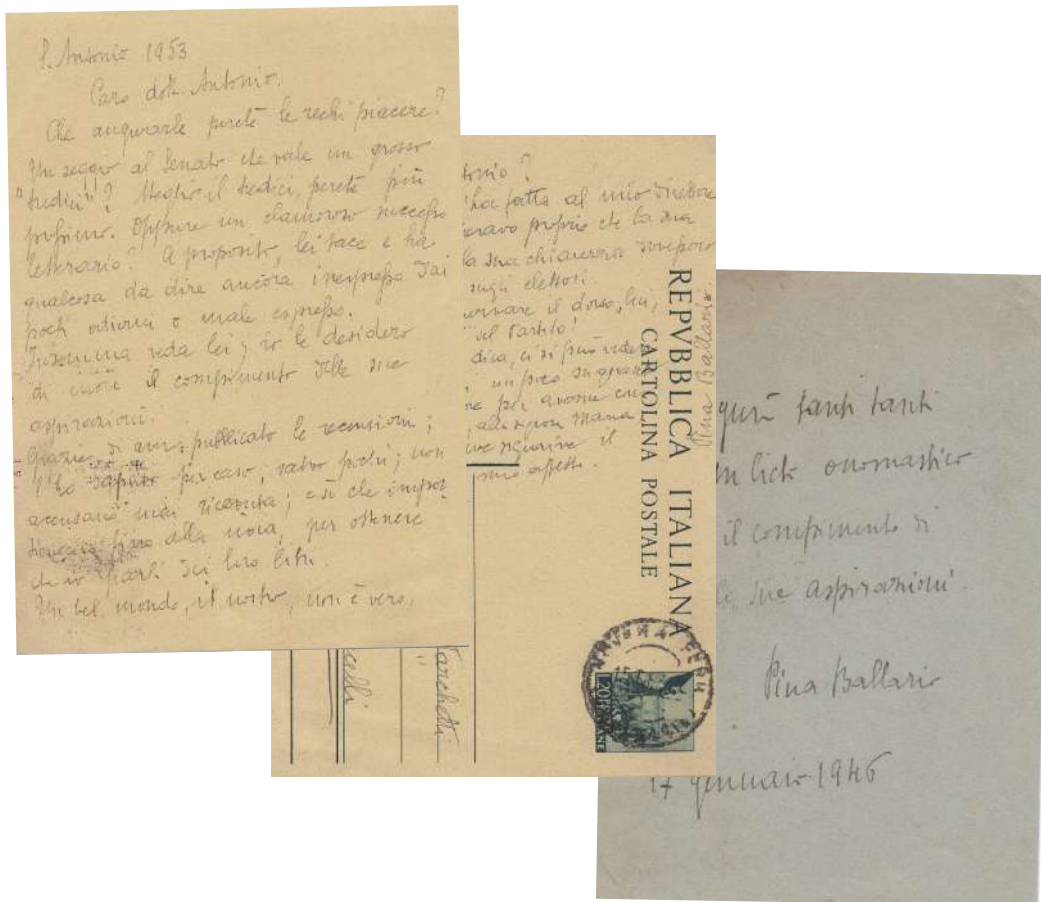 S. Antonio 1953
Caro dott. Antonio.
Che augurarle perchè le rechi piacere?
Un seggio al Senato che vale un grosso
"tredici"? Meglio il tredici, perchè più
prossimo. Oppure un clamoroso successo
letterario? A proposito, lei tace e ha
qualcosa da dire ancora inespresso dai
pochi o male espresso.
Insomma veda lei; io le desidero
di il compimento delle sue
aspirazioni.
Grazie di aver pubblicato le recensioni;
l'ho saputo per caso, salvo pochi; non
accusano mai ricevuta; e sì che
fino alla noia, per ottenere
che io parli dei loro libri.
Un bel mondo, il nostro, non è vero,
tonio?
ha fatta al mio
eravo proprio che la sua
la sua chiarezza
sugli elettori.
il dorso, lei,
del Partito!
dica, ci si può vedere
un poco
alla signora Maria
il
mio affetto.
REPVBBLICA ITALIANA
CARTOLINA POSTALE
Tarchetti
celli
20
guri tanti tanti
n lieto onomastico
il compimento di
le sue aspirazioni.
Pina Ballario
17 gennaio 1946